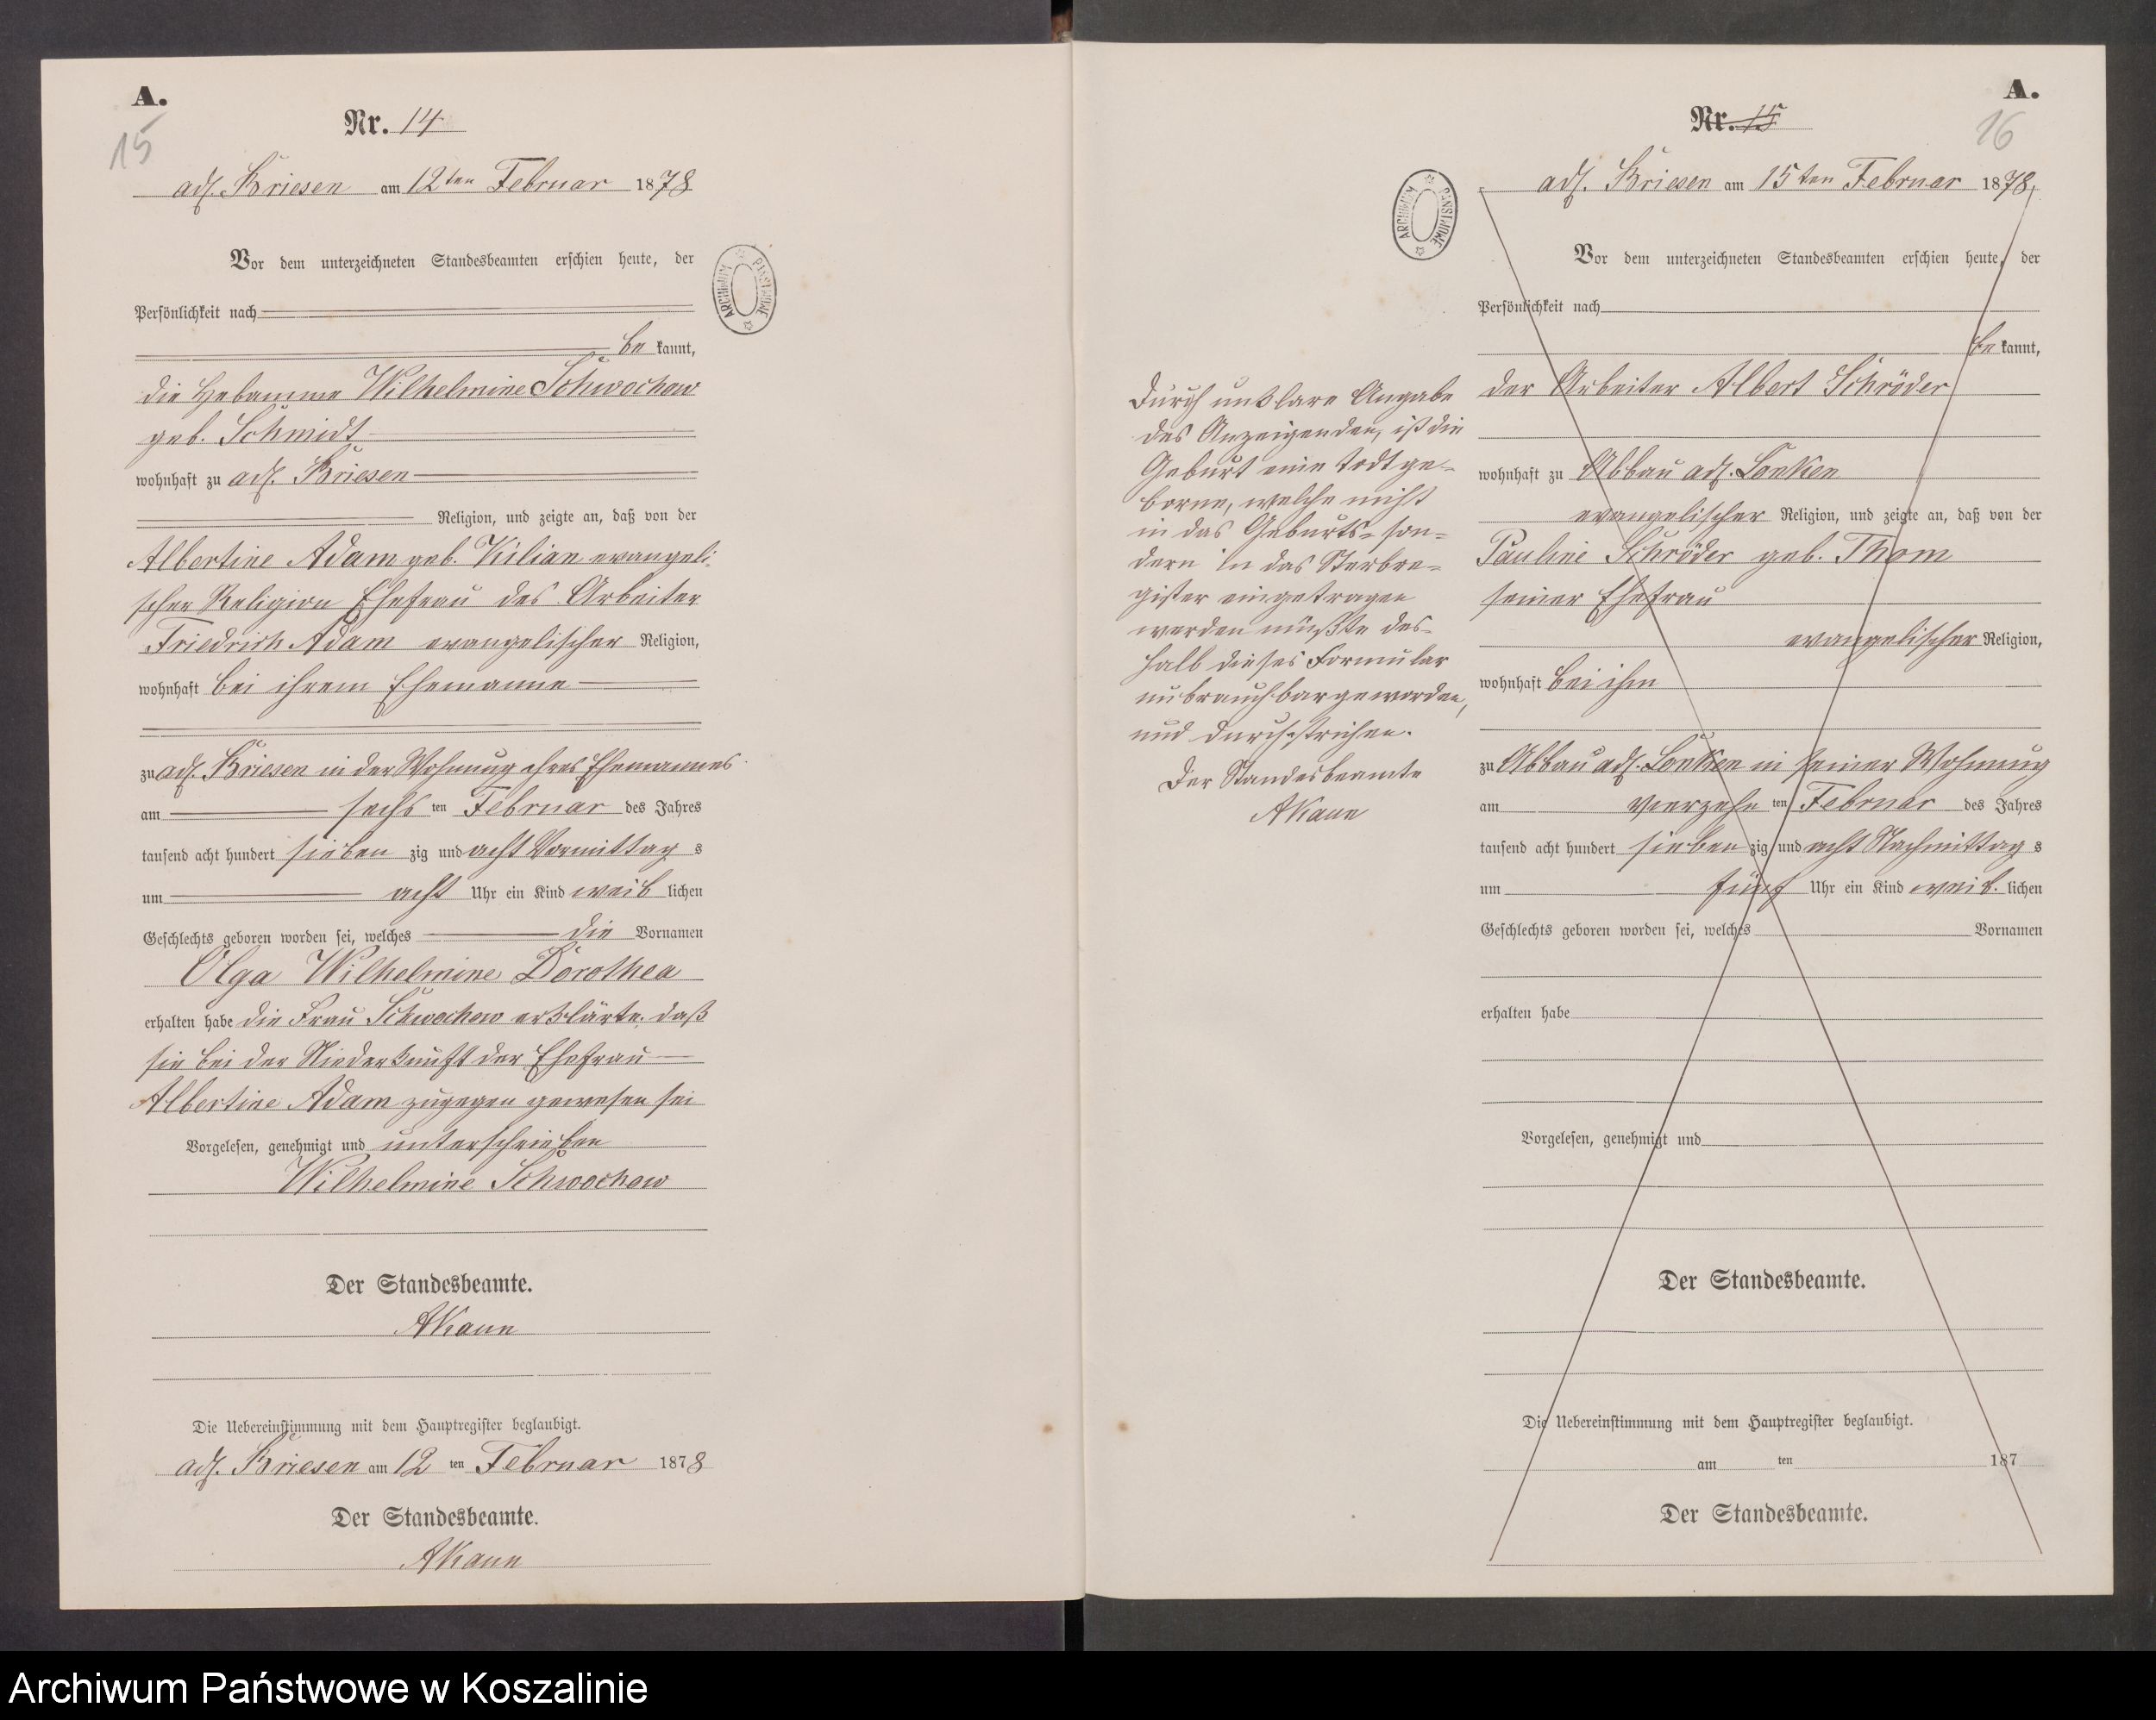 A.
15
Nr. 14
adl. Briesen am 12ten Februar 1878
Vor dem unterzeichneten Standesbeamten erschien heute, der
Persönlichkeit nach
be kannt,
die Hebamme Wilhelmine Schwochow
geb. Schmidt
wohnhaft zu adl. Briesen
Religion, und zeigte an, daß von der
Albertine Adam geb. Kilian evangeli-
scher Religion Ehefrau des Arbeiter
Friedrich Adam evangelischer Religion,
wohnhaft bei ihrem Ehemanne
zu adl. Briesen in der Wohnung ihres Ehemannes
am sechs ten Februar des Jahres
tausend acht hundert sieben zig und acht Vormittag s
um acht Uhr ein Kind weib lichen
Geschlechts geboren worden sei, welches die Vornamen
Olga Wilhelmine Dorothea
erhalten habe die Frau Schwochow erklärte, daß
sie bei der Niederkunft der Ehefrau
Albertine Adam zugegen gewesen sei
Vorgelesen, genehmigt und unterschrieben
Wilhelmine Schwochow
Der Standesbeamte.
Die Uebereinstimmung mit dem Hauptregister beglaubigt.
adl. Briesen am 12 ten Februar 1878
Der Standesbeamte.
ARCHIWUM PAŃSTWOWE
A.
16
Nr. 15
adl. Briesen am 15ten Februar 1878,
Vor dem unterzeichneten Standesbeamten erschien heute, der
Persönlichkeit nach
be kannt,
der Arbeiter Albert Schröder
wohnhaft zu Abbau adl. Lonken
evangelischer Religion, und zeigte an, daß von der
Pauline Schröder geb. Thom
seiner Ehefrau
evangelischer Religion,
wohnhaft bei ihm
zu Abbau adl. Lonken in seiner Wohnung
am vierzehn ten Februar des Jahres
tausend acht hundert sieben zig und acht Nachmittag s
um fünf Uhr ein Kind weib. lichen
Geschlechts geboren worden sei, welches Vornamen
erhalten habe
Vorgelesen, genehmigt und
Der Standesbeamte.
Die Uebereinstimmung mit dem Hauptregister beglaubigt.
am ten 187
Der Standesbeamte.
ARCHIWUM PAŃSTWOWE
Durch unklare Angabe
des Anzeigenden, ist die
Geburt eine todtge-
borne, welche nicht
in das Geburts- son-
dern in das Sterbere-
gister eingetragen
werden müßte des-
halb dieses Formular
unbrauchbar geworden,
und durchstrichen.
Der Standesbeamte
Archiwum Państwowe w Koszalinie